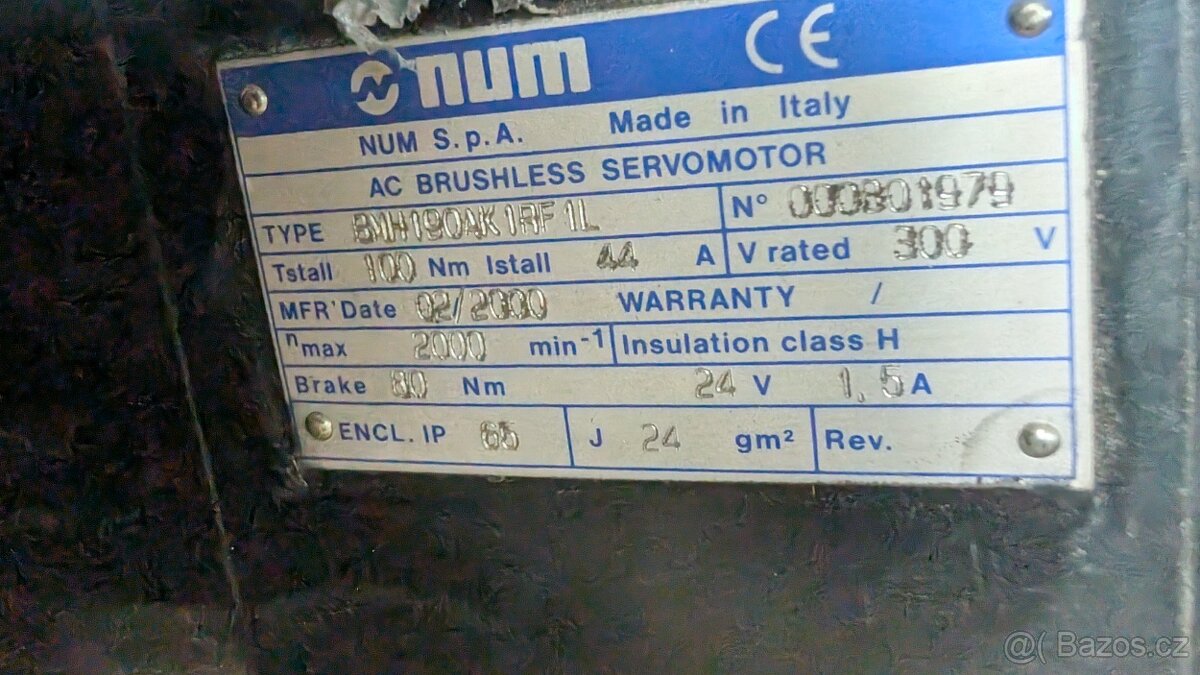 num CE
NUM S.p.A. Made in Italy
AC BRUSHLESS SERVOMOTOR
TYPE BMH190AK1RF1L N° 000801979
Tstall 100 Nm Istall 44 A V rated 300 V
MFR'Date 02/2000 WARRANTY /
nmax 2000 min-1 Insulation class H
Brake 80 Nm 24 V 1,5 A
ENCL. IP 65 J 24 gm² Rev.
@( Bazos.cz